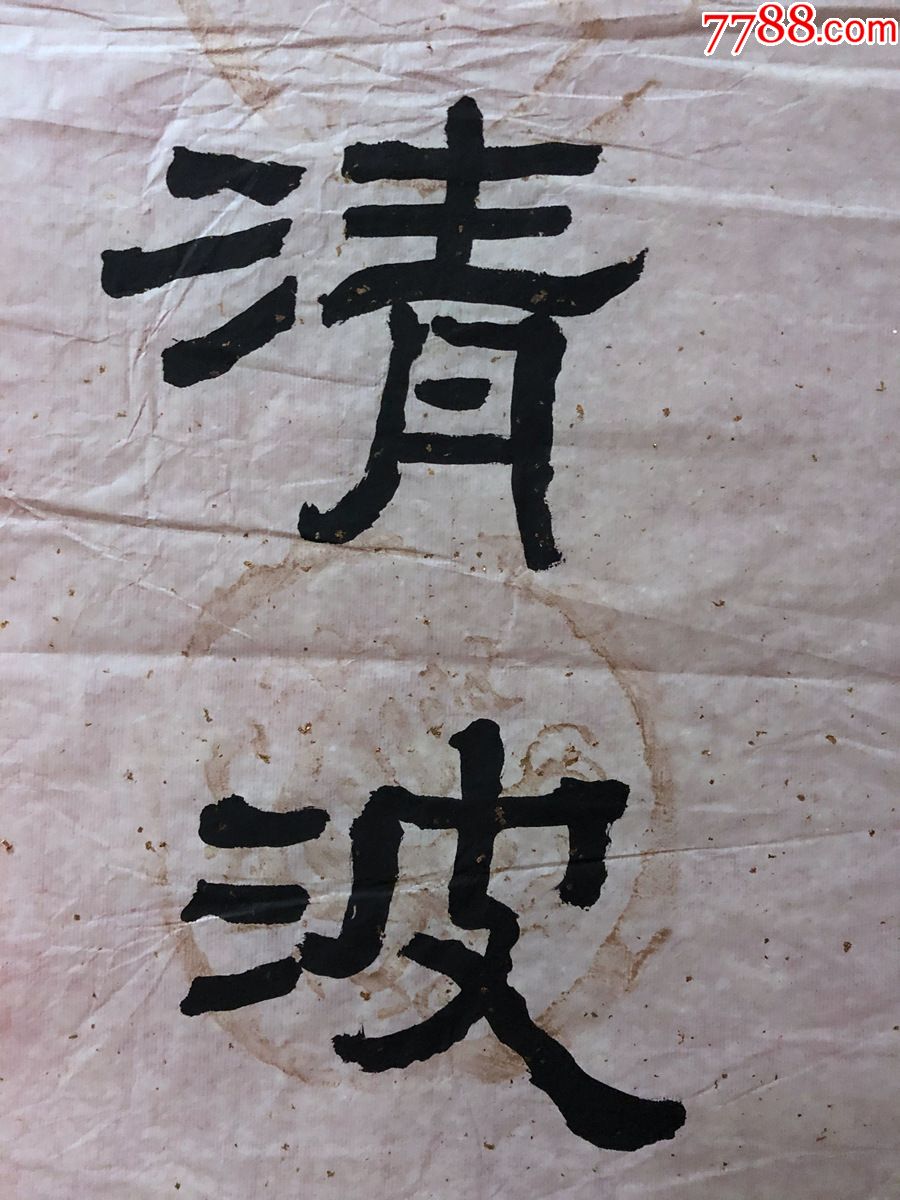 7788.com
清
波